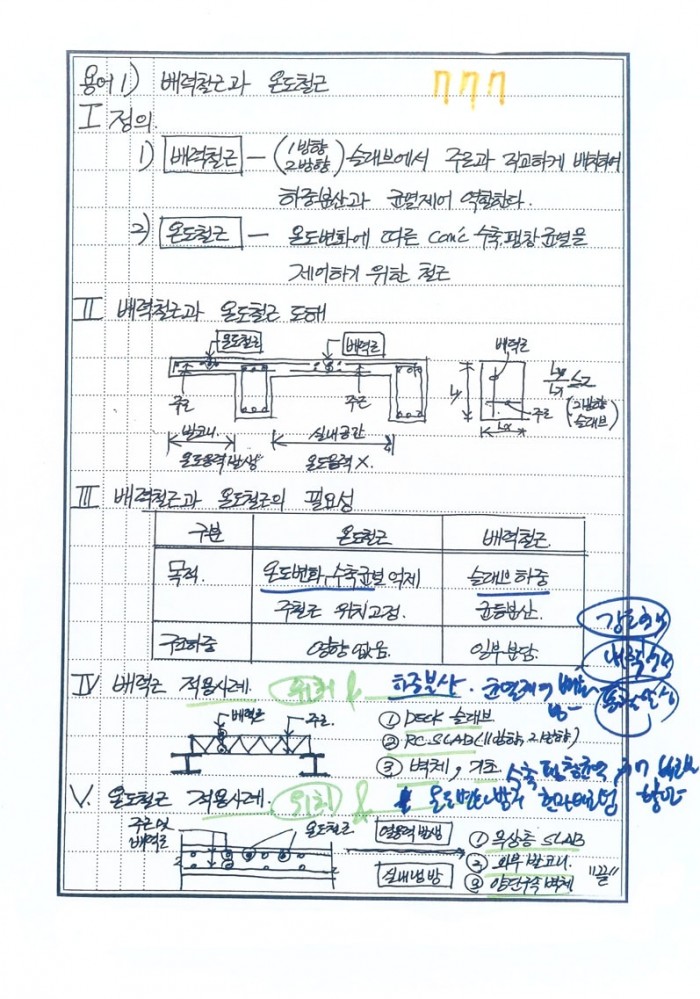 용어1) 배력철근과 온도철근
777
I 정의
1) 배력철근 - (1방향 2방향) 슬래브에서 주근과 직교하게 배치하여
하중분산과 균열제어 역할한다.
2) 온도철근 - 온도변화에 따른 con'c 수축팽창균열을
제어하기 위한 철근
II 배력철근과 온도철근 도해
온도철근 배력근 배력근
주근 주근 Ly Ly/Lx≤2
주근 (2방향 슬래브)
발코니 실내공간 Lx
온도응력발생 온도응력 X.
III 배력철근과 온도철근의 필요성
구분 온도철근 배력철근
목적 온도변화, 수축균열 억제 슬래브 하중
주철근 위치고정. 균등분산.
구조하중 영향 없음. 일부분담.
IV 배력근 적용사례. 위치 & 하중분산. 균열제어
배력근 주근 ① DECK 슬래브
② RC SLAB(1방향, 2방향)
③ 벽체, 기초
V. 온도철근 적용사례. 위치 &
주근 및 배력근 온도철근 열응력발생 ① 옥상층 SLAB
② 외부 발코니.
실내냉방 ③ 양단구속벽체 "끝"